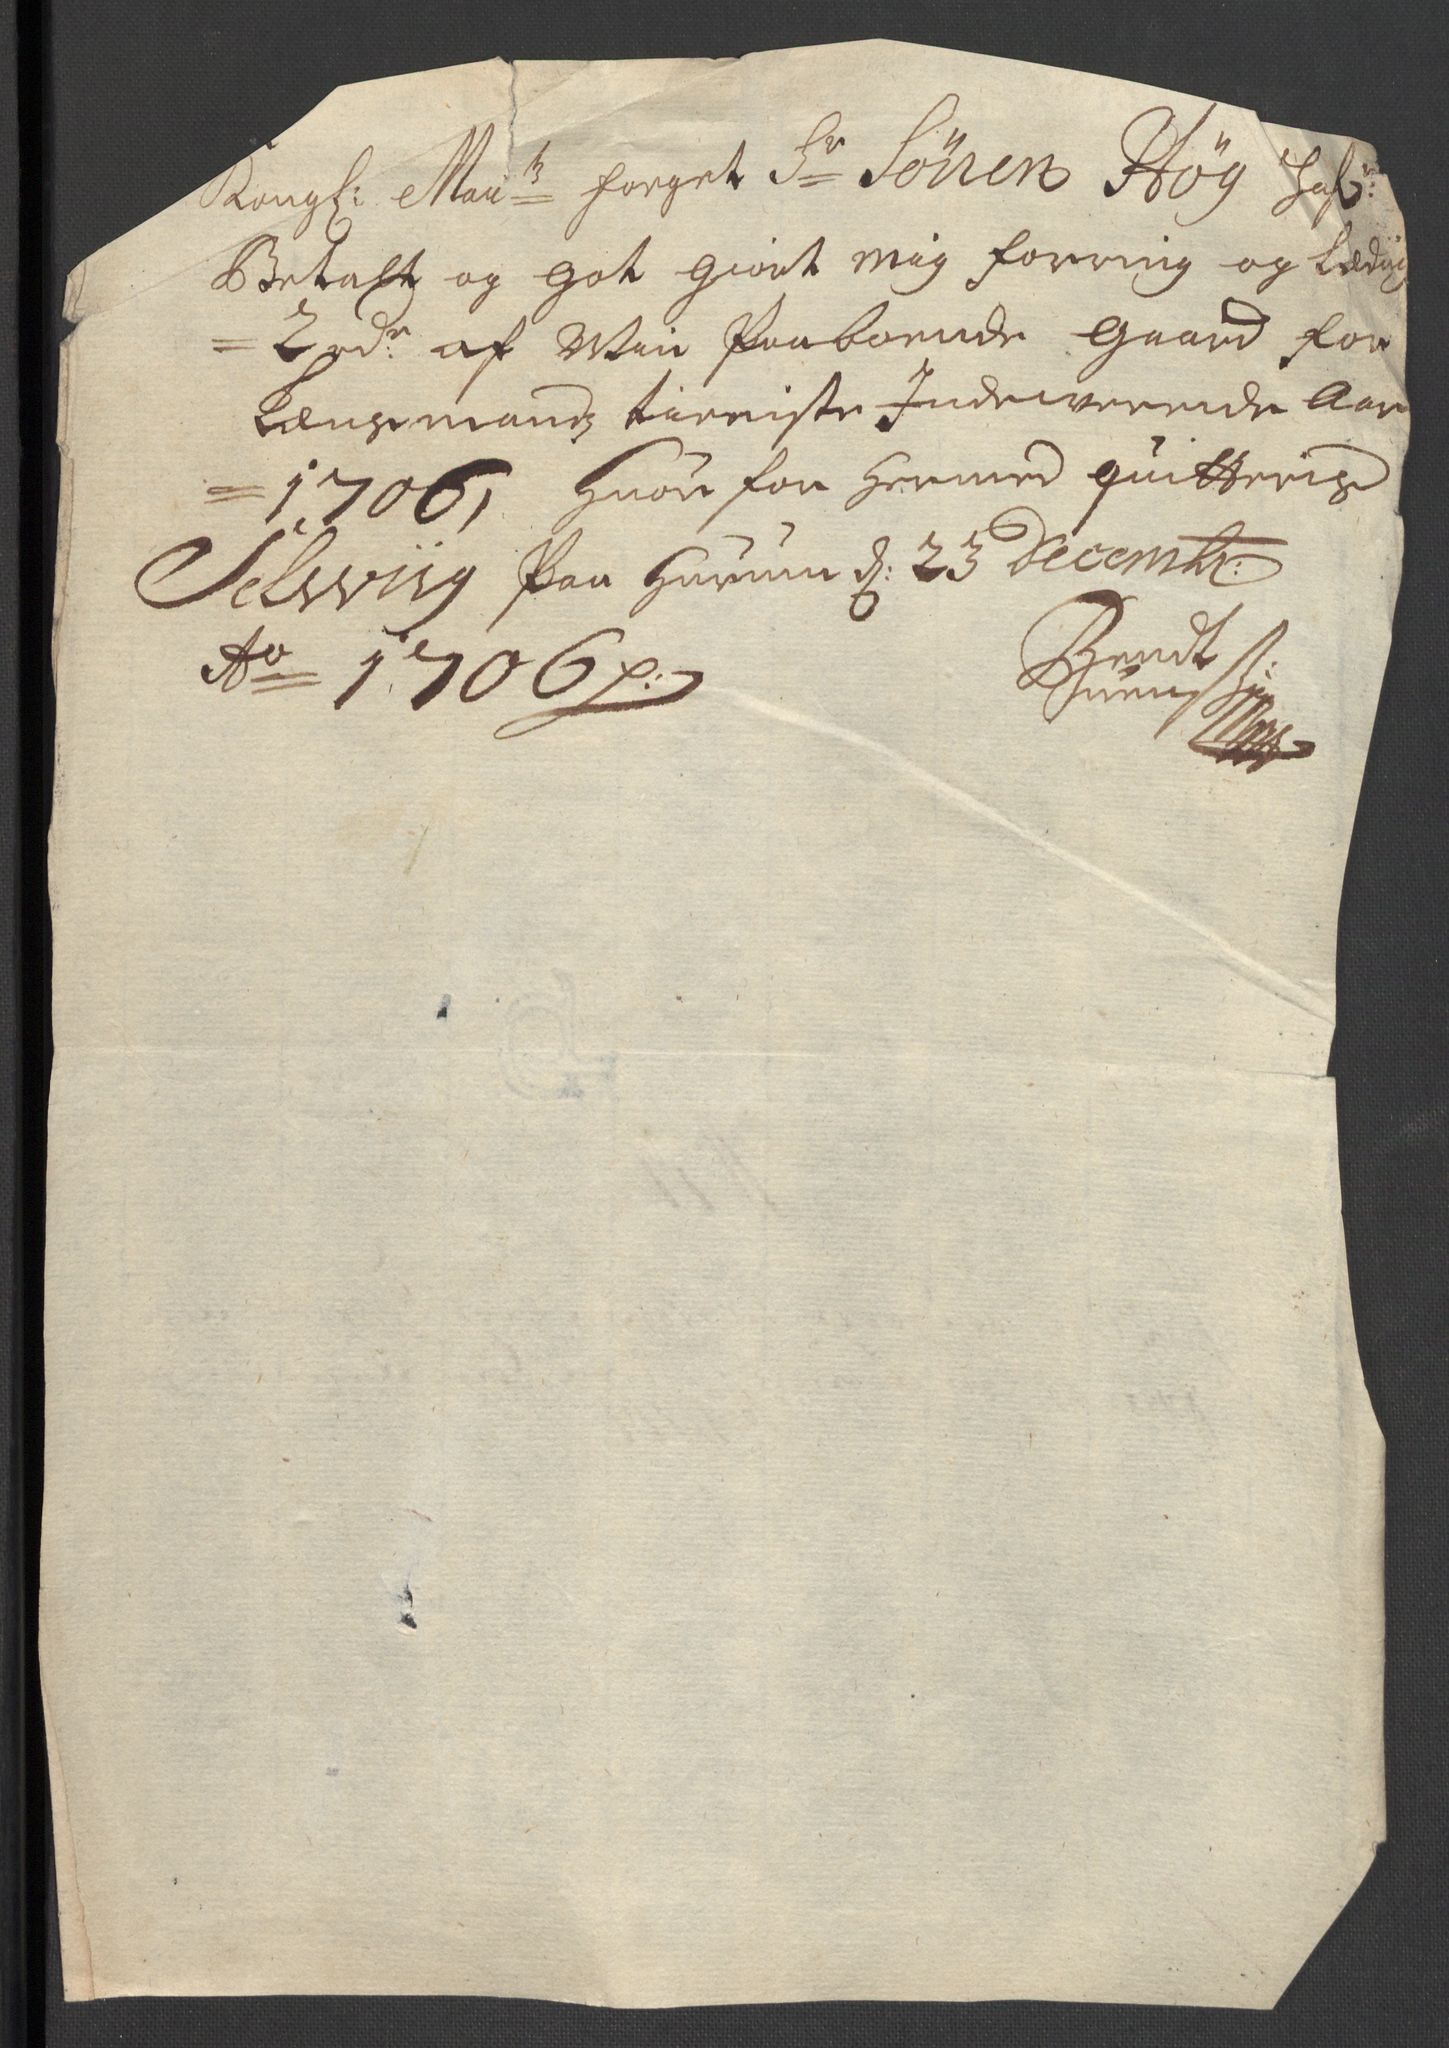 Kongl: Maÿtz foeget Sr Sören Höÿ hafr:
Betalt og got giort mig forring og Lædig
= 2 rdr af Min Paaboende Gaard for
Lænsmandz tienniste Indewerende Aar
= 1706, huor for hermed quitteris
Selwiig Paa Hurum d: 23 Decembr:
Ao = 1706 p:
Bendt